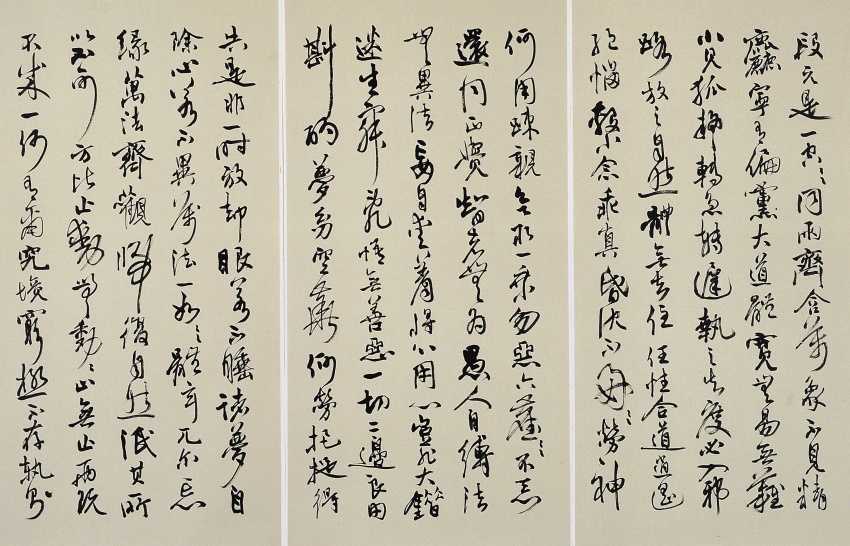 段元是一空〻同兩齊含萬象不見精
麤寧有偏黨大道體寬無易無難
小見狐疑轉急轉遲執之失度必入邪
路放之自然體無去住任性合道逍遙
絕惱繫念乖真昏沈不好〻勞神
何用疎親欲取一乘勿惡六塵〻不惡
還同正覺智者無為愚人自縛法
無異法妄自愛著將心用心豈非大錯
迷生寂亂悟無善惡一切二邊良由
斟酌夢幻空華何勞把捉得
失是非一時放却眼若不睡諸夢自
除心若不異萬法一如〻體玄兀尔忘
緣萬法齊觀歸復自然泯其所
以不可方比止動無動〻止無止兩既
不成一何有爾究境窮極不存軌則